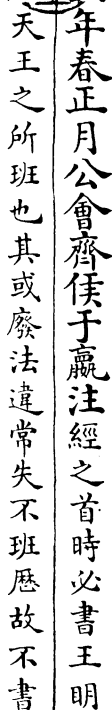 年春正月公會齊侯于嬴注經之首時必書王明
天王之所班也其或廢法違常失不班厯故不書